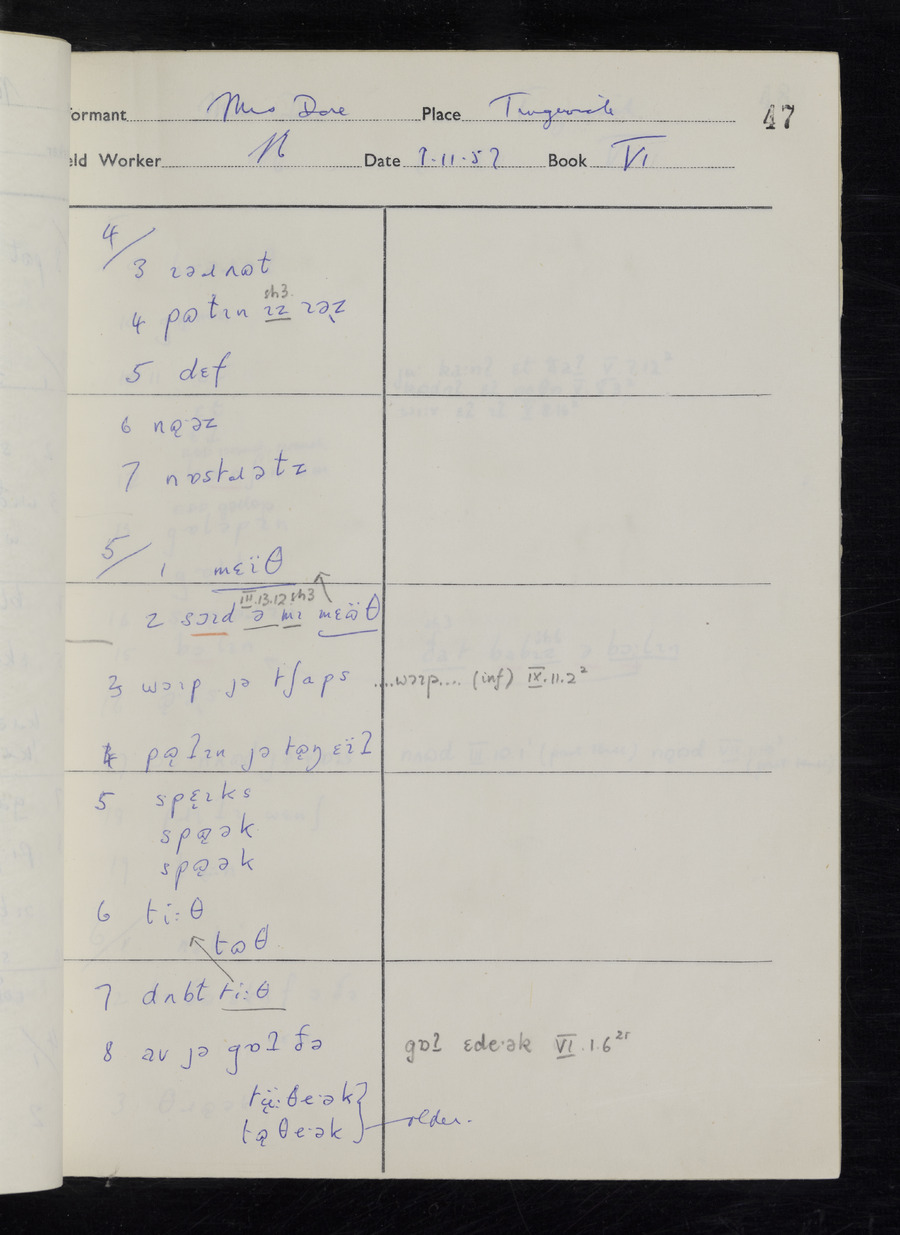 formant Mrs Dore Place Tingewick 47
eld Worker Date 7.11.57 Book VI
4/
3 ɪəɹnɷt
sh3.
4 pɷtɪn ɪz ɪəz
5 dɛf
6 nɑ̨·əz
7 nɒstɹətz
5/ 1 mɛïθ
III.13.12 sh3
2 sɔɪd ə mɪ mɛɷ̈θ
3 wəɪp jə tʃaps ....wɔɪp.... (inf) IX.11.2²
4 pɷ̨lɪn jə tɷ̨ŋ ɛïl
5 spɛ̨ɪks
spɷ̨ək
spɷ̨ək
6 ti:θ
tɷθ
7 dʌbt ti:θ
8 av jə gɒl ðə gɒl ɛde·ək VI.1.6²ʳ
tų̈:θe·ək
tɷ̨θe·ək older.